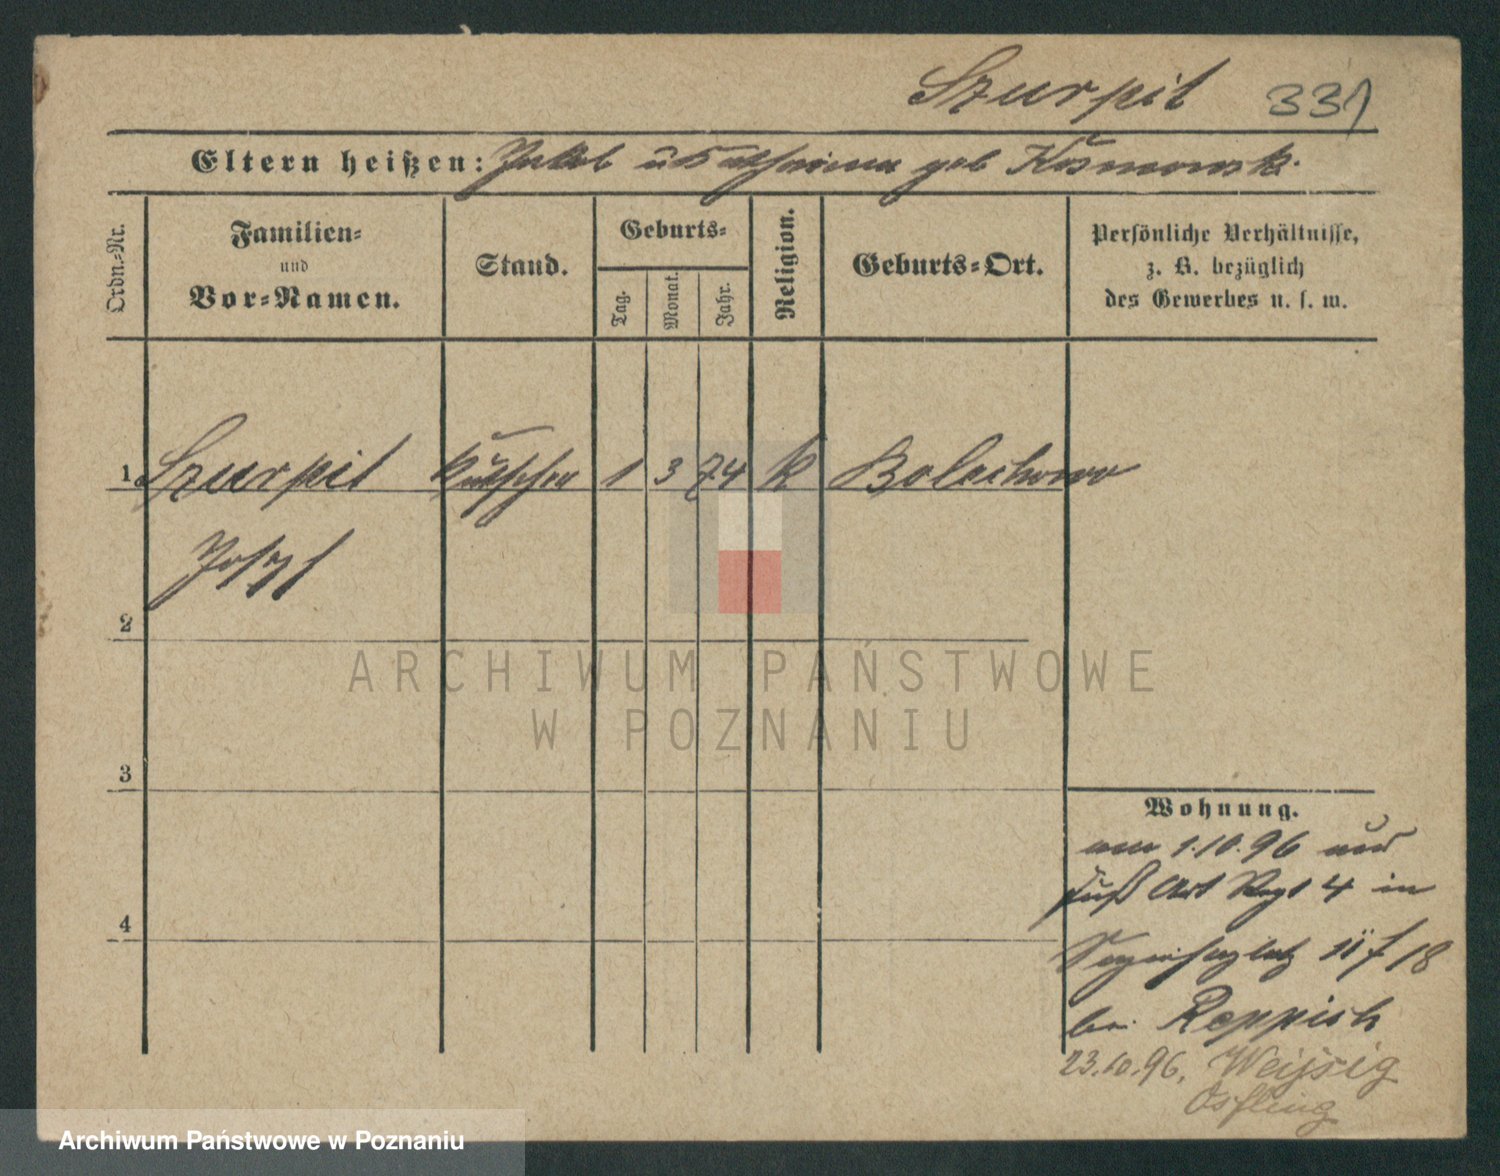 Szurpit 331
Eltern heißen: Jakob u Katharina geb Kosmowsk.
Ordn.-Nr.
Familien-
und
Vor-Namen.
Stand.
Geburts-
Tag.
Monat.
Jahr.
Religion.
Geburts-Ort.
Persönliche Verhältnisse,
z. B. bezüglich
des Gewerbes u. s. w.
1 Szurpit Kutscher 1 3 74 k Bolechowo
Josef
2
3
4
Wohnung.
am 1.10.96 von
Fuß Art Rgt 4 in
18
bei Reppich
23.10.96. Weissig
ARCHIWUM PAŃSTWOWE
W POZNANIU
Archiwum Państwowe w Poznaniu